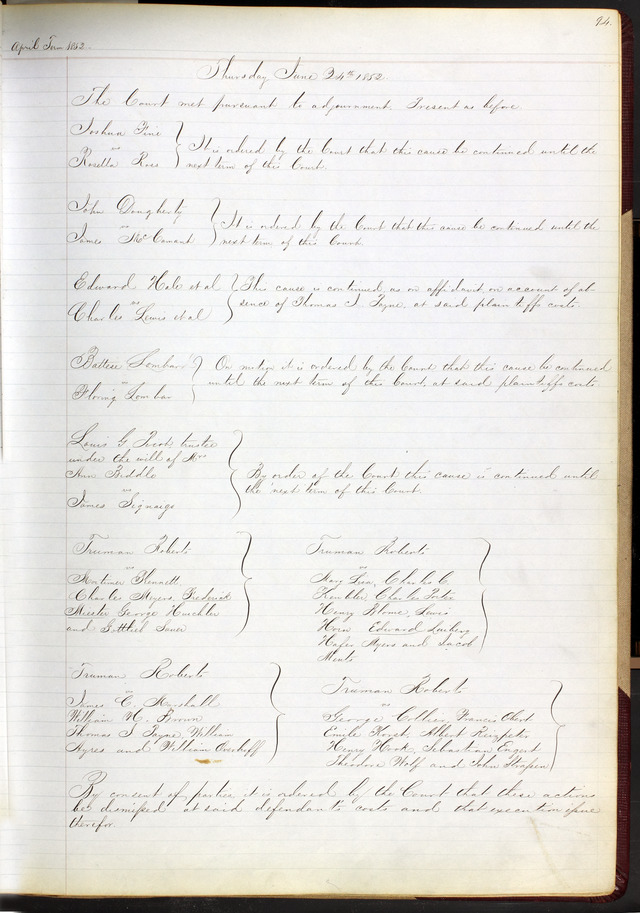 94.
April Term 1852.
Thursday June 24th 1852.
The Court met pursuant to adjournment. Present as before.
Joshua Fine
vs
Rosella Rose
It is ordered by the Court that this cause be continued until the
next term of this Court.
John Dougherty
vs
James McCannant
It is ordered by the Court that this cause be continued until the
next term of this Court.
Edward Hale et al
vs
Charles Lewis et al
This cause is continued as on affidavit on account of ab-
sence of Thomas J. Payne, at said plaintiffs costs.
Battese Lombar
vs
Floring Lombar
On motion it is ordered by the Court that this cause be continued
until the next term of this Court, at said plaintiffs costs
Louis G. Picot, trustee
under the will of Mrs
Ann Biddle
vs
James Signaigo
By order of the Court this cause is continued until
the next term of this Court.
Truman Roberts
vs
Mortimer Kennett
Charles Myers, Frederick
George Kuchler
and Gottlieb
Truman Roberts
vs
Charles C.
Charles
Henry Blome
Horn Edward
Hafer Myers and Jacob
Truman Roberts
vs
James C. Marshall
William H. Brown
Thomas J Payne, William
Ayres and William Overhoff
Truman Roberts
vs
George Collier, Francis Obert
Emile Horst, Albert
Henry Hook, Sebastian Engert
Theodore Wolf and John Strassen
By consent of parties it is ordered by the Court that these actions
be dismissed at said defendants costs and that execution issue
therefor.